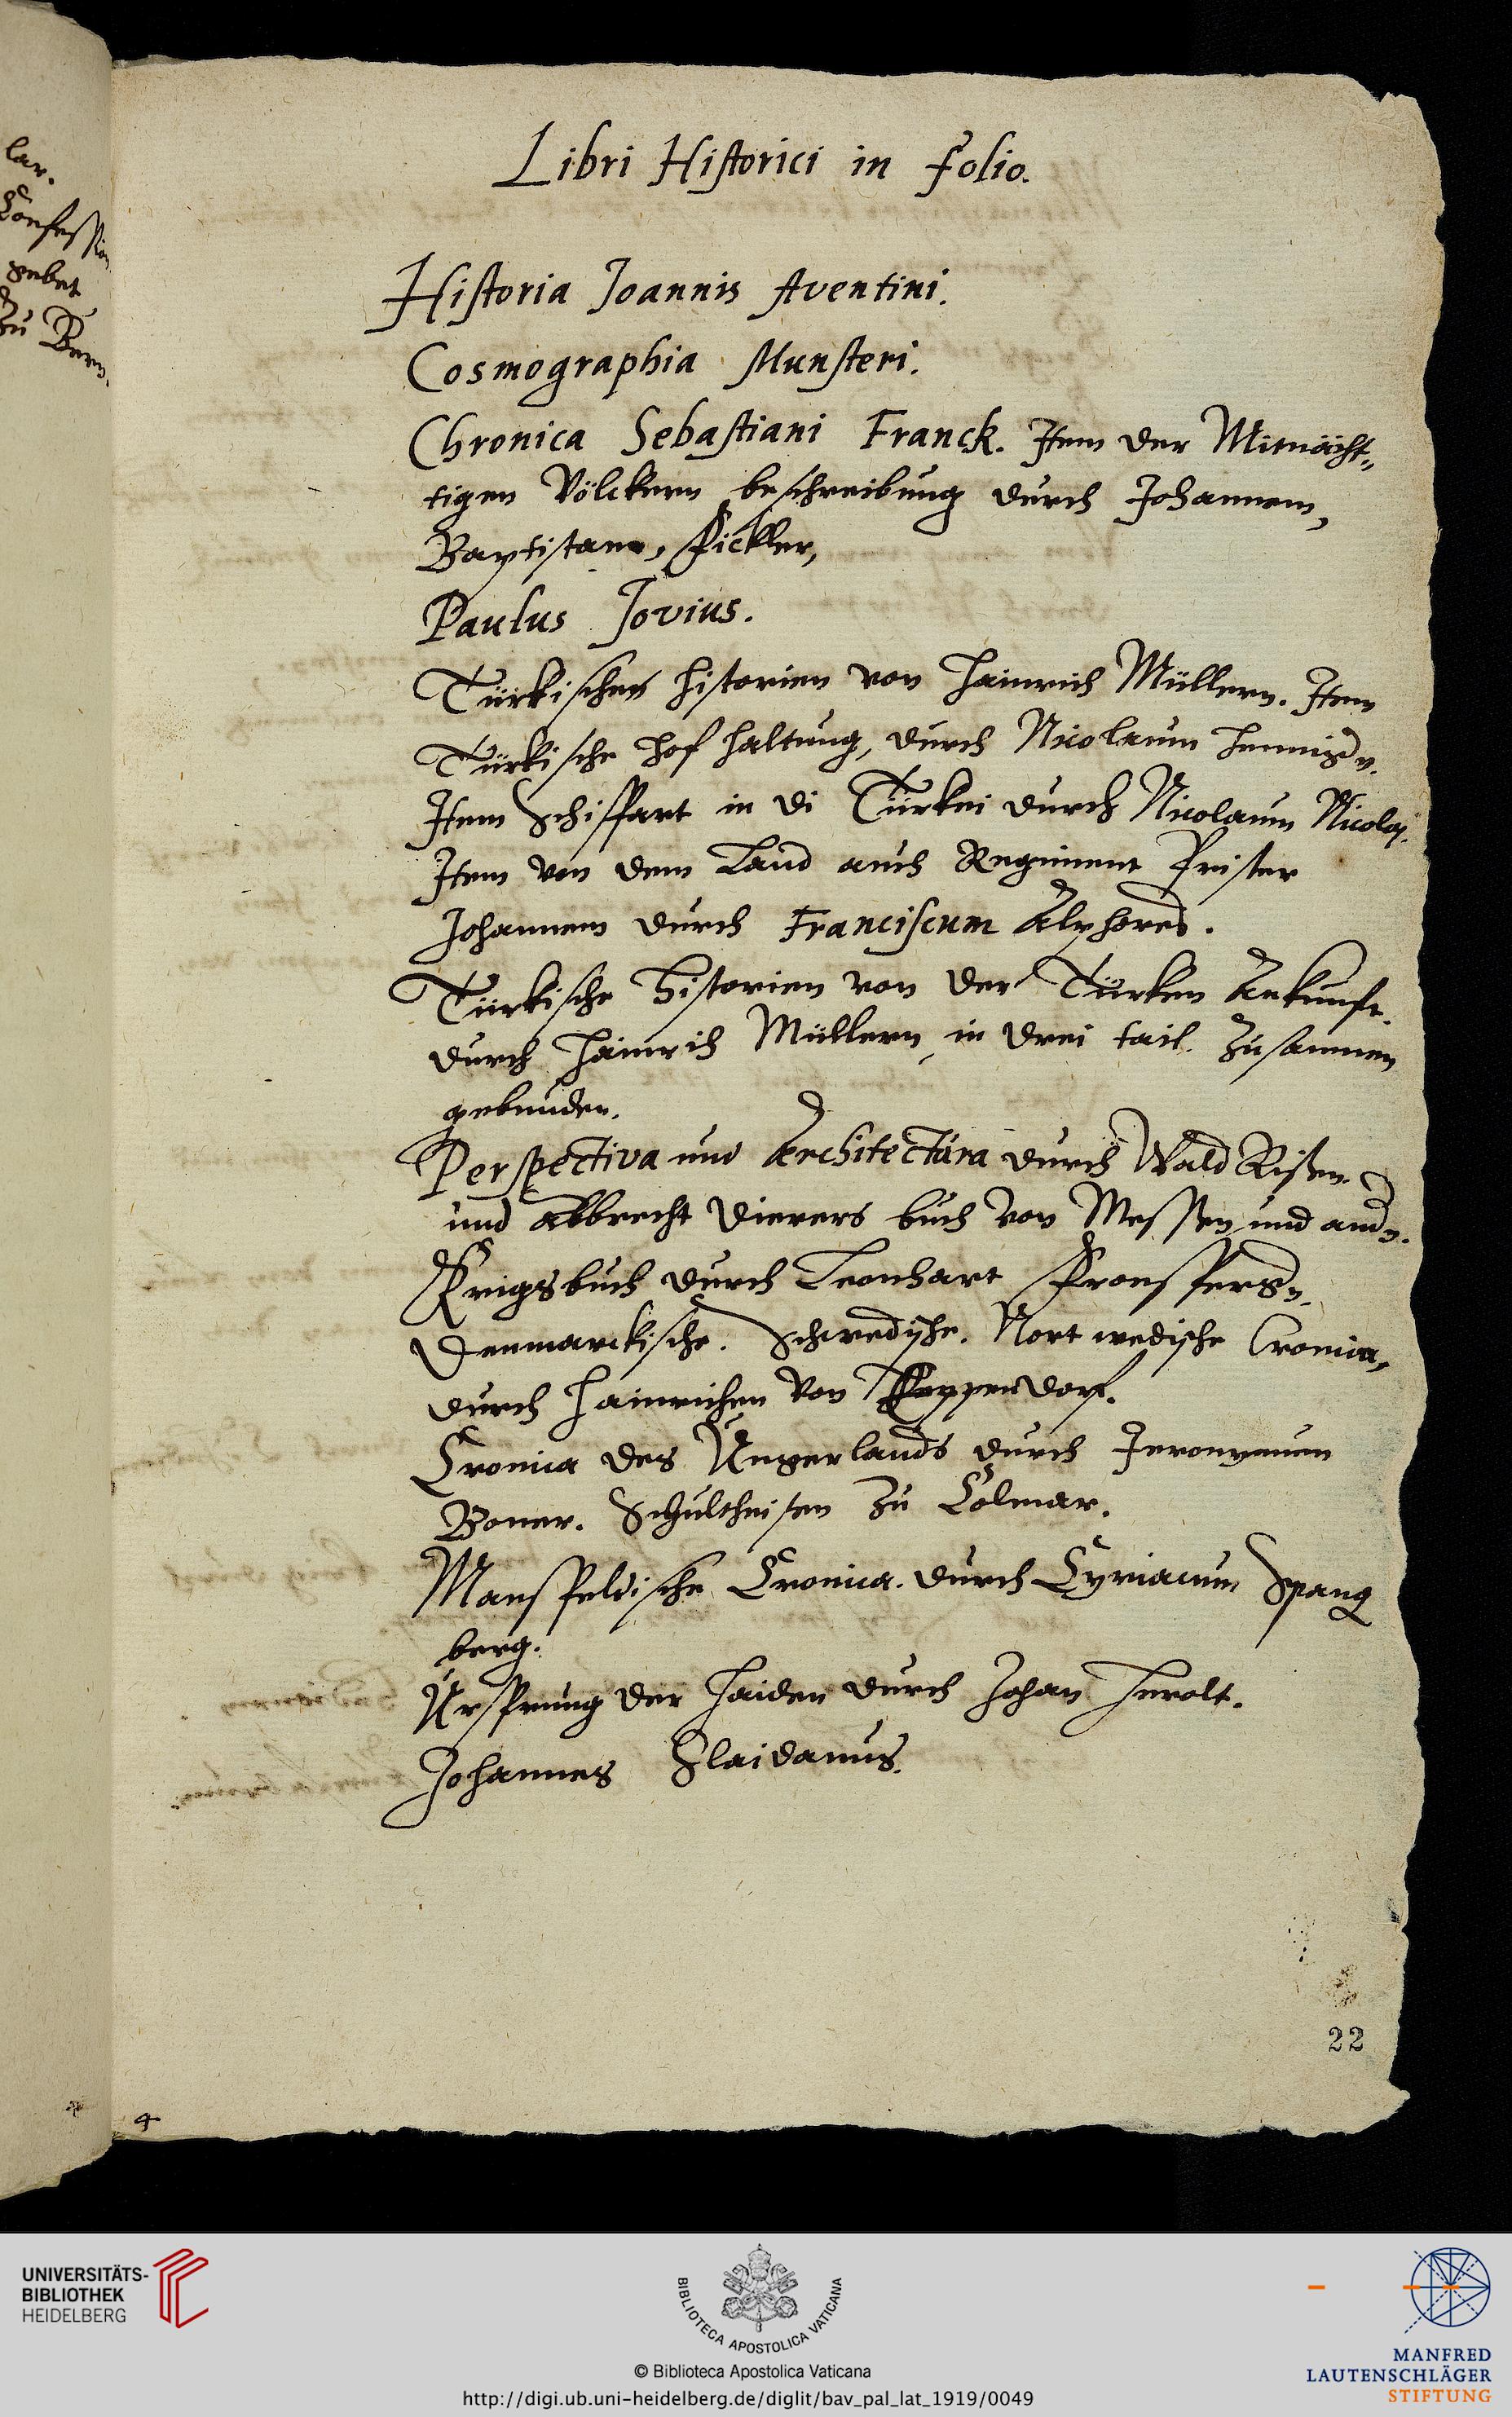 lar.
Confession
gebet
zu Bern.
Libri Historici in folio.
Historia Joannis Aventini.
Cosmographia Munsteri.
Chronica Sebastiani Franck. Item der Mitnächt„
tigen Völckern beschreibung durch Johannem,
Baptistam, Fickler,
Paulus Jovius.
Türkischen historien von Hainrich Müllern. Item
Türkische hof haltung, durch Nicolaum
Item Schiffart in di Türkei durch Nicolaum Nicolaj.
Item von dem Land auch Regiment Prister
Johannem durch Franciscum Alphores.
Türkische historien von der Türken Ankunft.
durch Hainrich Müllern, in drei tail. zusammen
gebunden.
Perspectiva und Architectura durch Wald Rißen
und Albrecht Dierers buch von Messen und andn.
Krigsbuch durch Leonhart Fronspergn.
Denmarckische. Schwedische. Nortwedische Cronica,
durch Hainrichen von Eppendorf.
Cronica des Ungerlands durch Jeronymum
Boner. Schultheisen zu Colmar.
Mansfeldische Cronica. durch Cyriacum Spang
berg.
Ursprung der Haiden durch Johan Herolt.
Johannes Slaidanus.
22
4
UNIVERSITÄTS-
BIBLIOTHEK
HEIDELBERG
BIBLIOTECA APOSTOLICA VATICANA
© Biblioteca Apostolica Vaticana
http://digi.ub.uni-heidelberg.de/diglit/bav_pal_lat_1919/0049
MANFRED
LAUTENSCHLÄGER
STIFTUNG